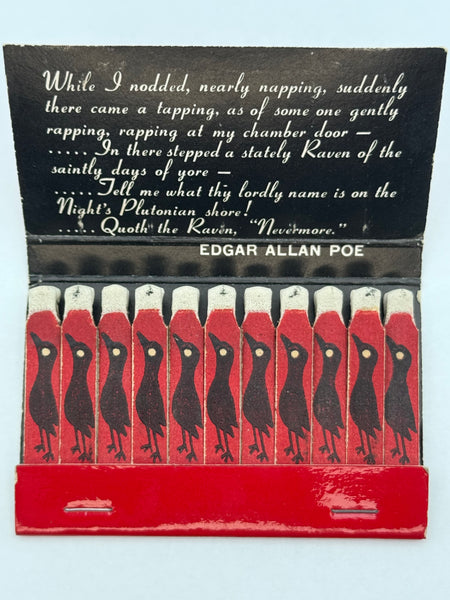 While I nodded, nearly napping, suddenly
there came a tapping, as of some one gently
rapping, rapping at my chamber door —
..... In there stepped a stately Raven of the
saintly days of yore —
..... Tell me what thy lordly name is on the
Night's Plutonian shore!
..... Quoth the Raven, "Nevermore."
EDGAR ALLAN POE